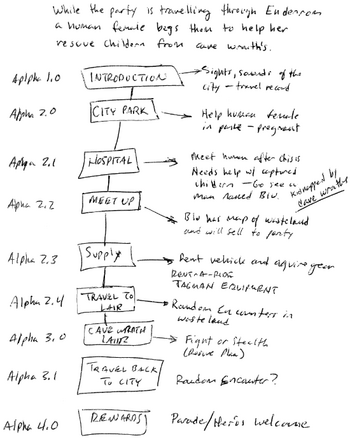 While the party is travelling through
a human female begs them to help her
rescue children from cave wraith's.
Alpha 1.0
INTRODUCTION
Sights, sounds of the
city - travel record
Alpha 2.0
CITY PARK
Help human female
in park - pregnant
Alpha 2.1
HOSPITAL
Meet human after crisis
Needs help w/ captured
children - Go see a
man named Blu.
kidnapped by
cave wraiths
Alpha 2.2
MEET UP
Blu has map of wasteland
and will sell to party
Alpha 2.3
Supply
Rent vehicle and aquire gear
RENT-A-
TAGMAN EQUIPMENT
Alpha 2.4
TRAVEL TO
LAIR
Random Encounters in
wasteland
Alpha 3.0
CAVE WRAITH
LAIR
Fight or Stealth
(Rescue Plan)
Alpha 3.1
TRAVEL BACK
TO CITY
Random Encounter?
Alpha 4.0
REWARDS
Parade/Hero's welcome